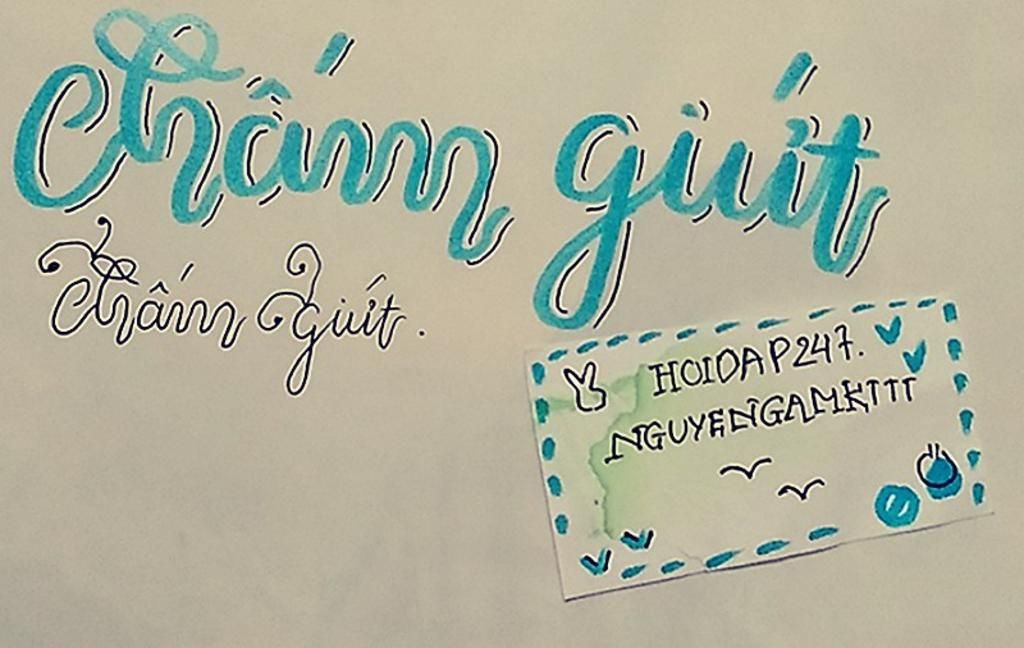 Chấm giứt
Chấm giứt.
HOIDAP247.
NGUYENGAMKTTT